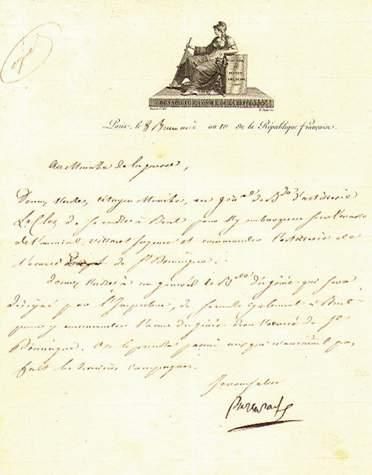 BONAPARTE 1er CONSUL DE LA RÉPUBLIQUE
Paris, le 8 Brumaire an 10 de la République française.
Au Ministre de la guerre,
Donnez l'ordre, Citoyen Ministre, au gén.al de B.de d'artillerie
de se rendre à Brest pour s'y embarquer sur l'escadre
de l'amiral Villaret Joyeuse et commander l'artillerie de
l'armée de St Domingue.
Donnez l'ordre à un général de B.de du génie qui sera
désigné par l'Inspecteur, de se rendre également à Brest
pour y commander l'arme du génie dans l'armée de St
Domingue. On le prendra parmi ceux qui n'auraient pas
fait les dernières campagnes.
Je vous salue
Bonaparte